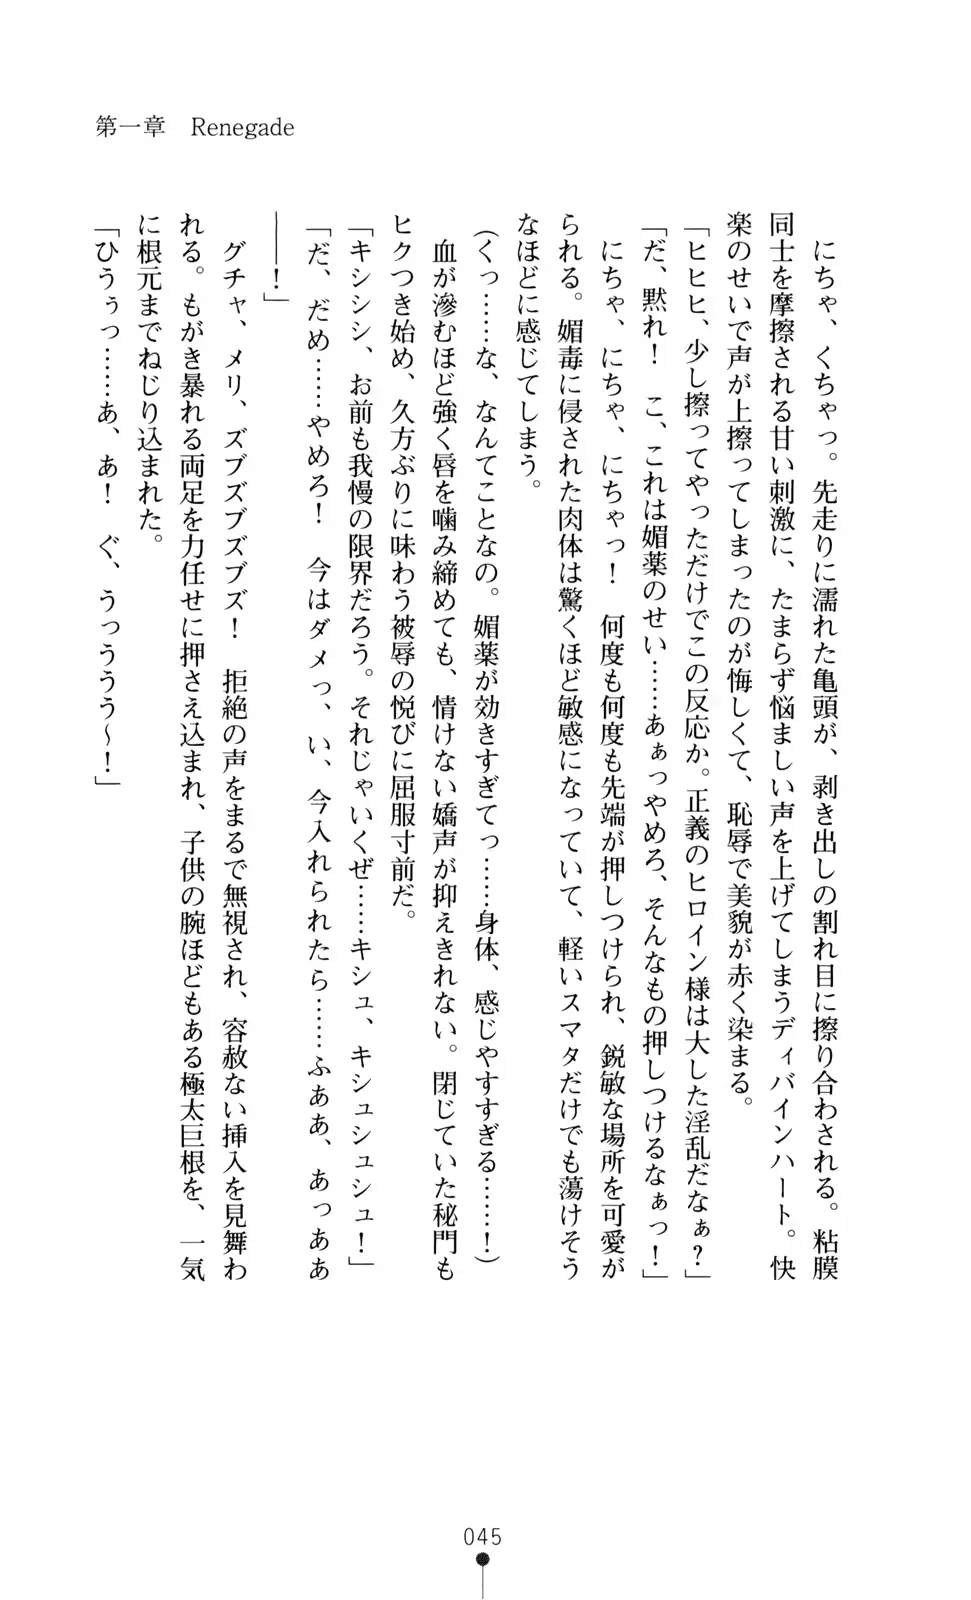 第一章　Renegade
　にちゃ、くちゃっ。先走りに濡れた亀頭が、剥き出しの割れ目に擦り合わされる。粘膜
同士を摩擦される甘い刺激に、たまらず悩ましい声を上げてしまうディバインハート。快
楽のせいで声が上擦ってしまったのが悔しくて、恥辱で美貌が赤く染まる。
「ヒヒヒ、少し擦ってやっただけでこの反応か。正義のヒロイン様は大した淫乱だなぁ？」
「だ、黙れ！　こ、これは媚薬のせい……あぁっやめろ、そんなもの押しつけるなぁっ！」
　にちゃ、にちゃ、にちゃっ！　何度も何度も先端が押しつけられ、鋭敏な場所を可愛が
られる。媚毒に侵された肉体は驚くほど敏感になっていて、軽いスマタだけでも蕩けそう
なほどに感じてしまう。
（くっ……な、なんてことなの。媚薬が効きすぎてっ……身体、感じやすすぎる……！）
　血が滲むほど強く唇を噛み締めても、情けない嬌声が抑えきれない。閉じていた秘門も
ヒクつき始め、久方ぶりに味わう被辱の悦びに屈服寸前だ。
「キシシシ、お前も我慢の限界だろう。それじゃいくぜ……キシュ、キシュシュシュ！」
「だ、だめ……やめろ！　今はダメっ、い、今入れられたら……ふああ、あっああ
――！」
　グチャ、メリ、ズブズブズブズ！　拒絶の声をまるで無視され、容赦ない挿入を見舞わ
れる。もがき暴れる両足を力任せに押さえ込まれ、子供の腕ほどもある極太巨根を、一気
に根元までねじり込まれた。
「ひうぅっ……あ、あ！　ぐ、うっううう～！」
045